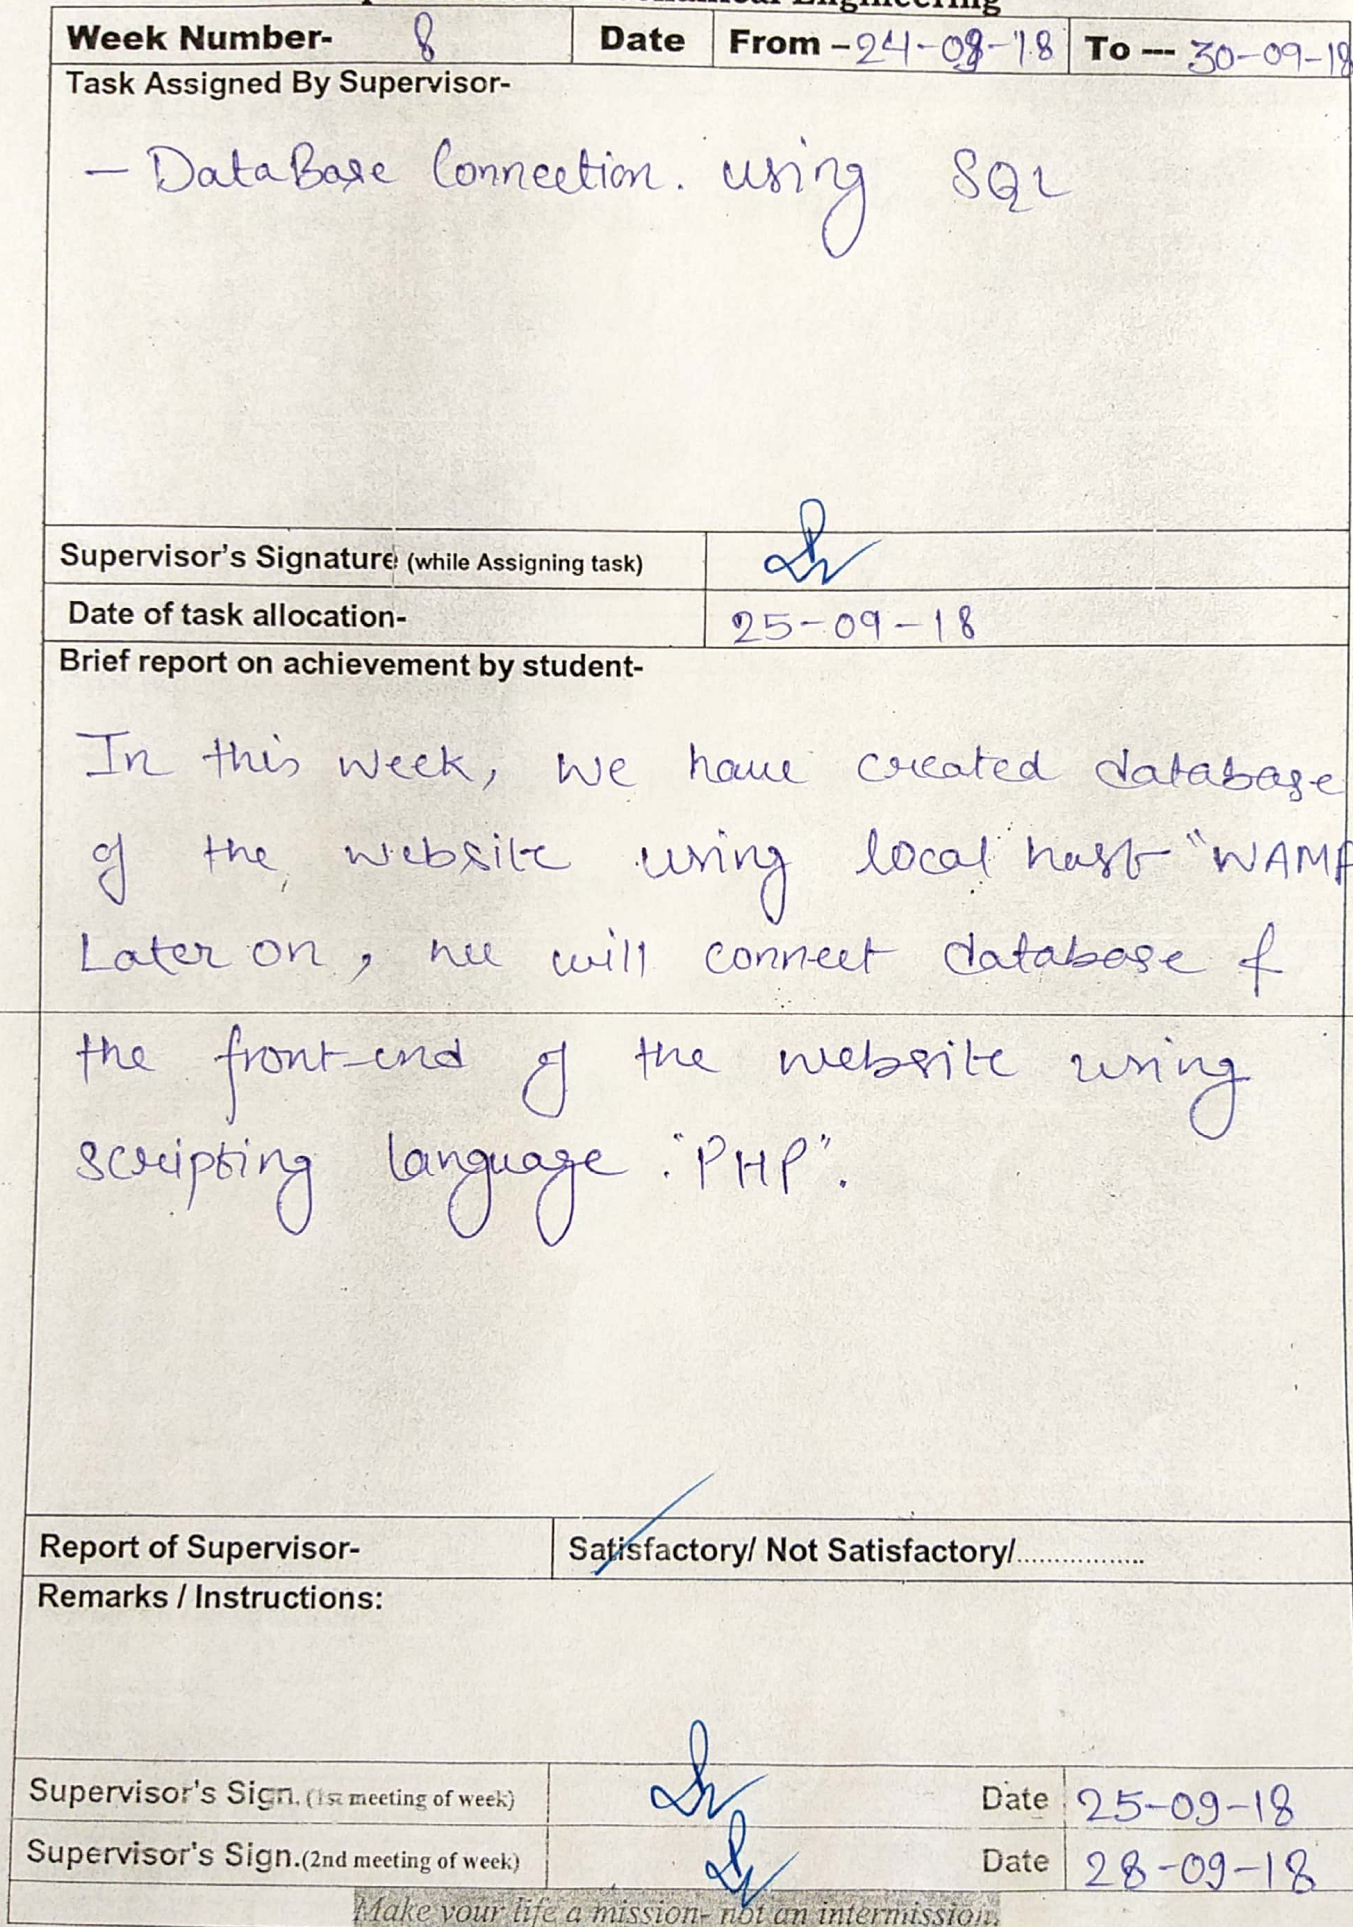 Engineering
Week Number- 8 Date From - 24-09-18 To --- 30-09-18
Task Assigned By Supervisor-
- DataBase Connection. using SQL
Supervisor's Signature (while Assigning task)
Date of task allocation- 25-09-18
Brief report on achievement by student-
In this week, we have created database
of the website using local host "WAMP
Later on, we will connect database &
the front-end of the website using
scripting language "PHP".
Report of Supervisor- Satisfactory/ Not Satisfactory/..................
Remarks / Instructions:
Supervisor's Sign. (1st meeting of week) Date 25-09-18
Supervisor's Sign.(2nd meeting of week) Date 28-09-18
Make your life a mission- not an intermission.